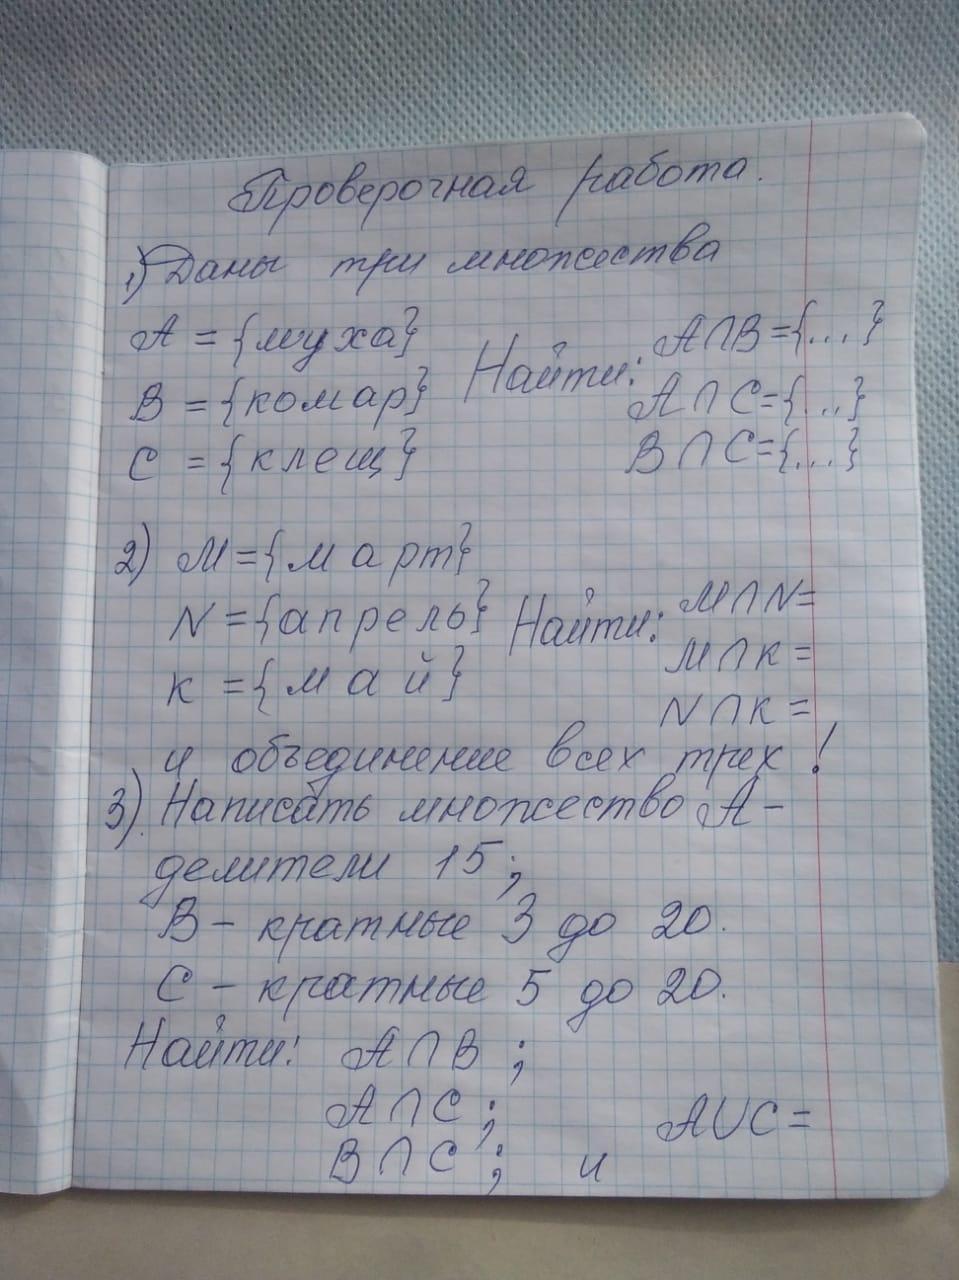 Проверочная работа.
1) Даны три множества
A = {муха} Найти: A∩B={...}
B = {комар} A∩C={..}
C = {клещ} B∩C={...}
2) M={март}
N={апрель} Найти: M∩N=
K={май} M∩K=
N∩K=
и объединение всех трех!
3). Написать множество A-
делители 15;
B- кратные 3 до 20.
C- кратные 5 до 20.
Найти: A∩B;
A∩C; A∪C=
B∩C; и